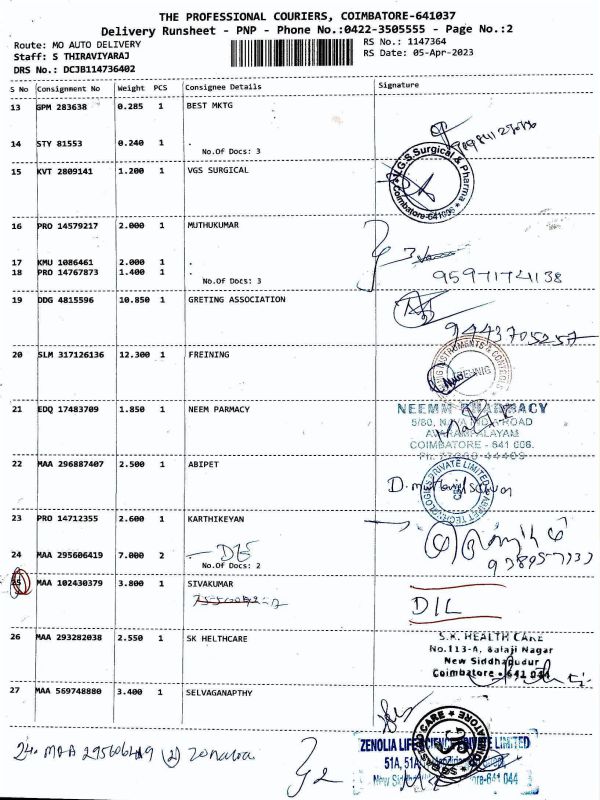 THE PROFESSIONAL COURIERS, COIMBATORE-641037
Delivery Runsheet - PNP - Phone No.:0422-3505555 - Page No.:2
Route: MO AUTO DELIVERY
RS No.: 1147364
Staff: S THIRAVIYARAJ
RS Date: 05-Apr-2023
DRS No.: DCJB114736402
S No Consignment No Weight PCS Consignee Details Signature
13 GPM 283638 0.285 1 BEST MKTG
14 STY 81553 0.240 1 .
No.Of Docs: 3
15 KVT 2809141 1.200 1 VGS SURGICAL
V.G.S.Surgical & Pharma
Coimbatore-641006
16 PRO 14579217 2.000 1 MUTHUKUMAR
17 KMU 1086461 2.000 1 .
18 PRO 14767873 1.400 1 .
No.Of Docs: 3
9597174138
19 DDG 4815596 10.850 1 GRETING ASSOCIATION
9443705257
20 SLM 317126136 12.300 1 FREINING
INSTRUMENTS & CONTROLS
21 EDQ 17483709 1.850 1 NEEM PARMACY
NEEMM PHARMACY
5/80, NAVA INDIA ROAD
AVARAMPALAYAM
COIMBATORE - 641 006.
22 MAA 296887407 2.500 1 ABIPET
ABIPET TECHNOLOGIES PRIVATE LIMITED
23 PRO 14712355 2.600 1 KARTHIKEYAN
24 MAA 295606419 7.000 2
No.Of Docs: 2
25 MAA 102430379 3.800 1 SIVAKUMAR
D/L
26 MAA 293282038 2.550 1 SK HELTHCARE
S.K. HEALTH CARE
No.113-A, Balaji Nagar
New Siddhapudur
Coimbatore - 641 044
27 MAA 569748880 3.400 1 SELVAGANAPTHY
24. MAA 295606419 (2) Zonalia
ZENOLIA LIFE SCIENCE PRIVATE LIMITED
51A,